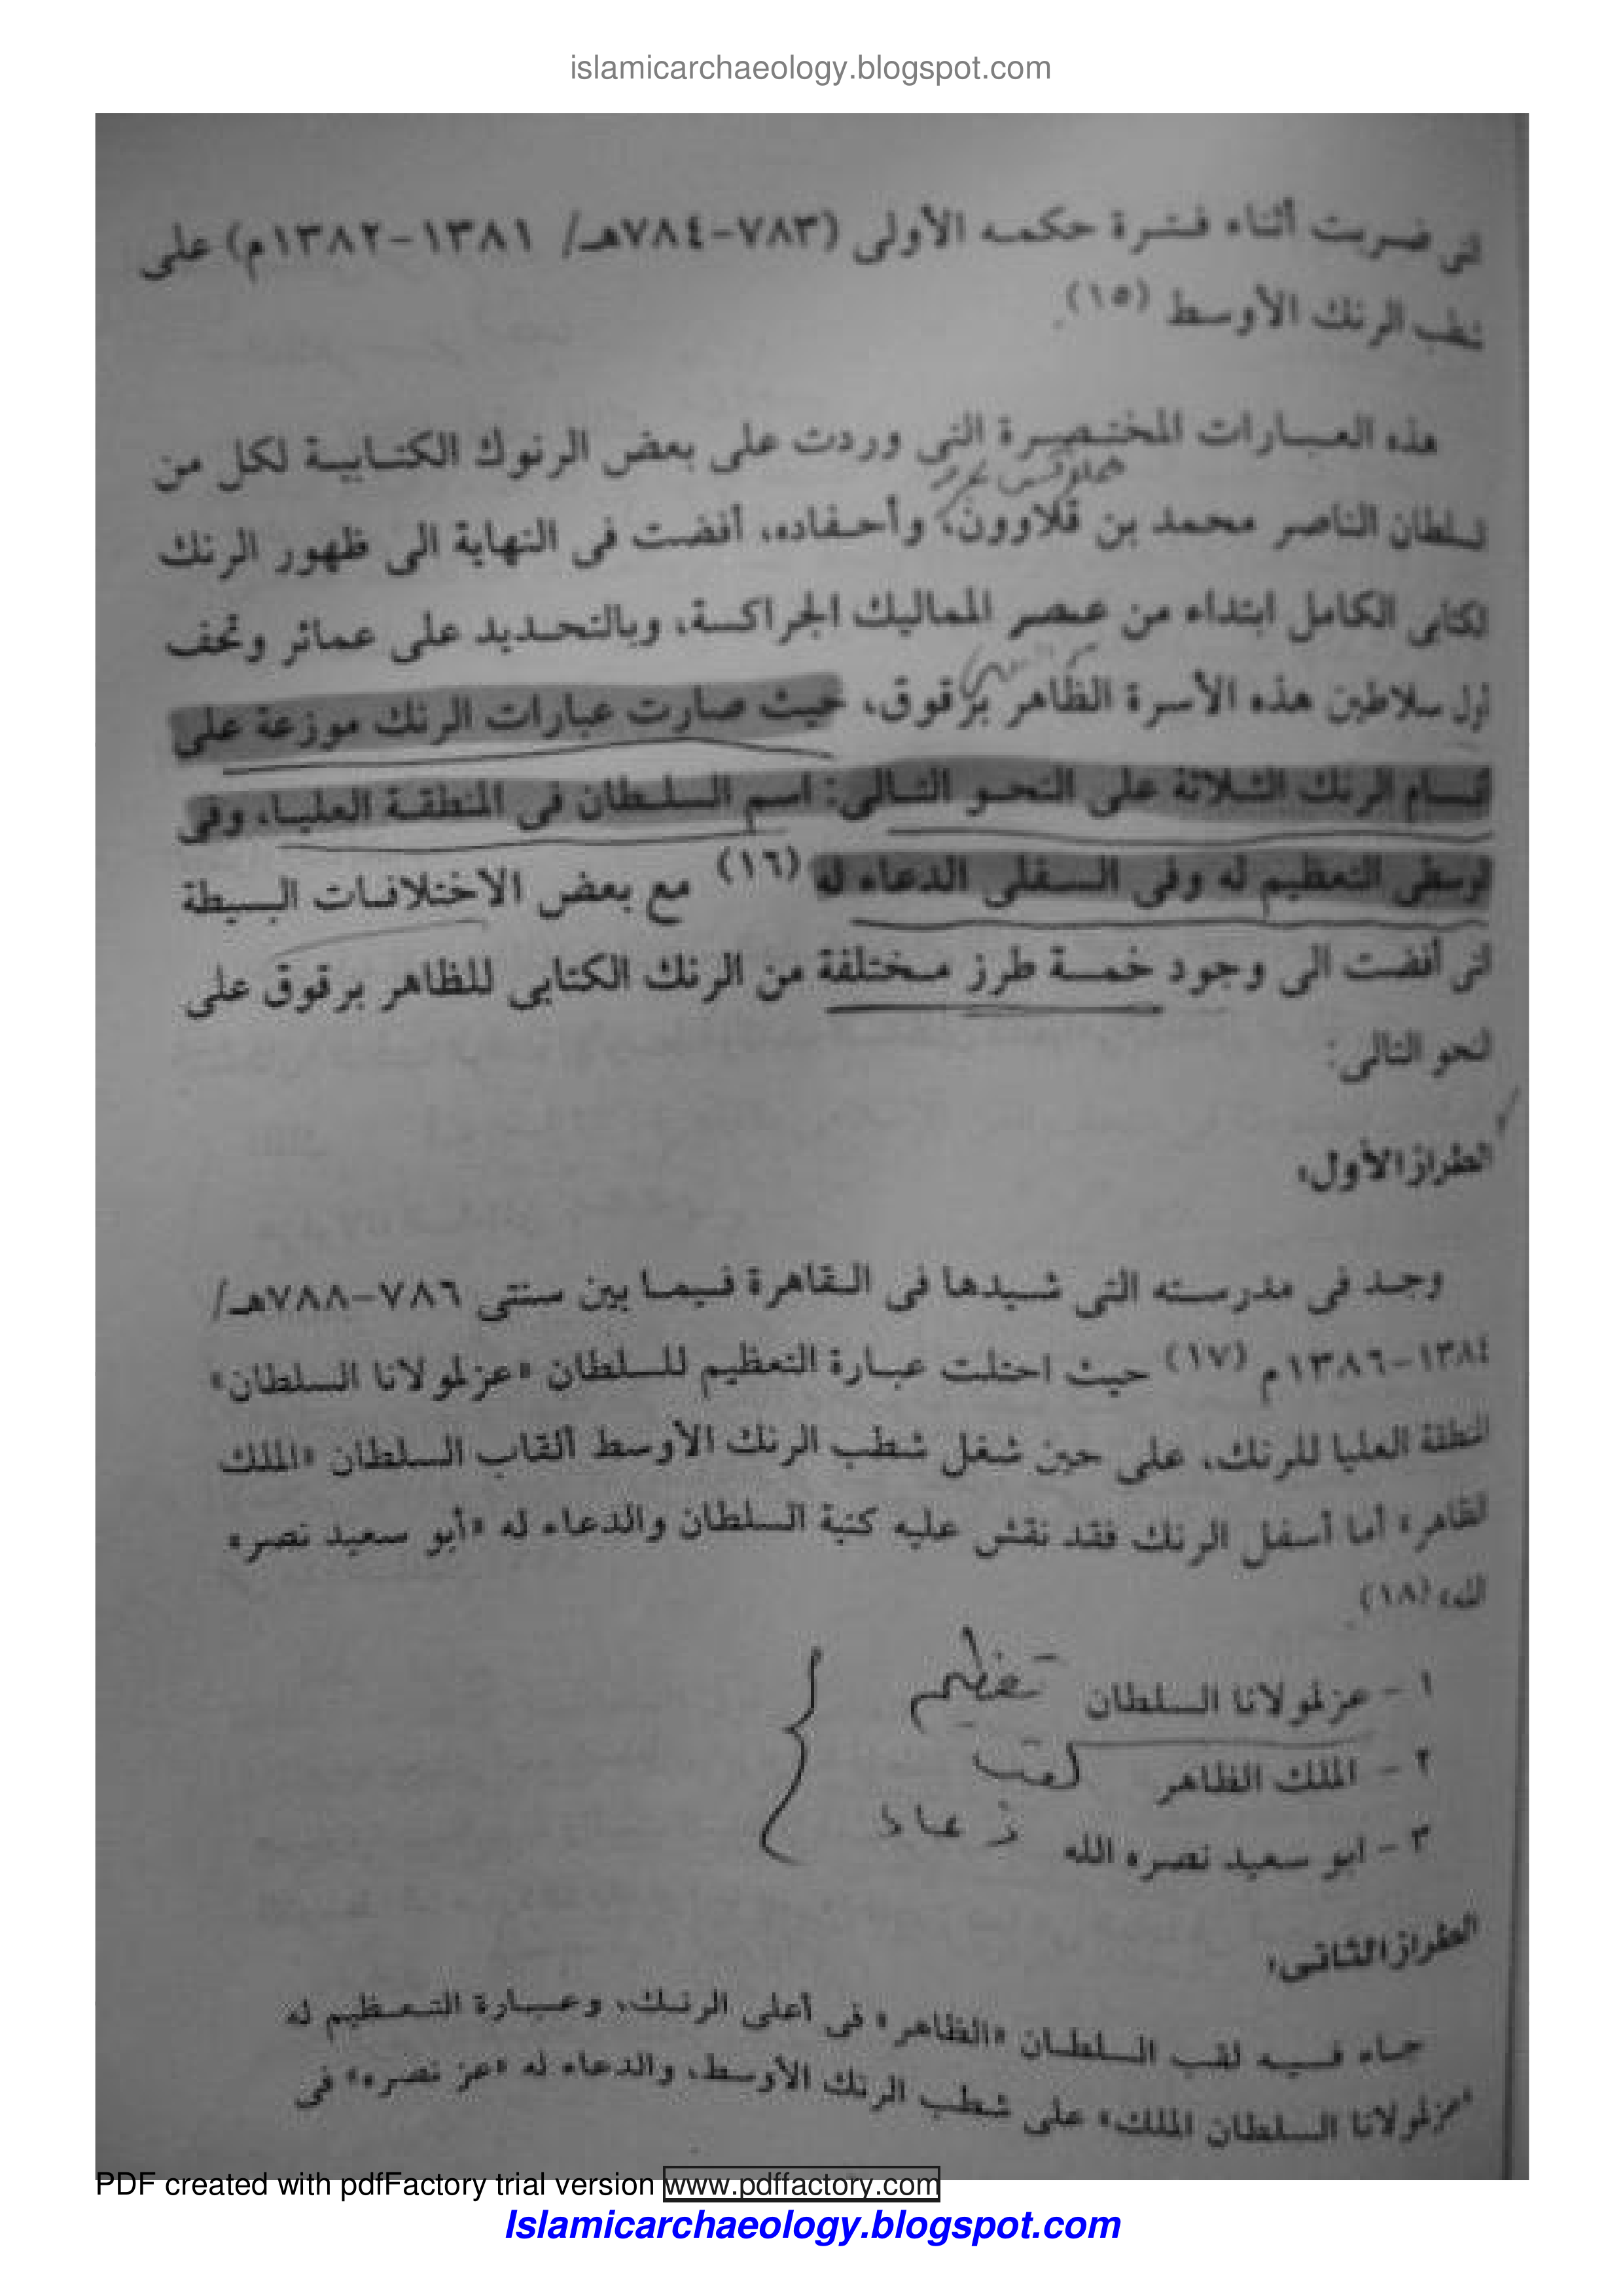 islamicarchaeology.blogspot.com
التى ضربت أثناء فترة حكمه الأولى (٧٨٣-٧٨٤هـ/ ١٣٨١-١٣٨٢م) على
شطب الرنك الأوسط (١٥).
هذه العبارات المختصرة التى وردت على بعض الرنوك الكتابية لكل من
السلطان الناصر محمد بن قلاوون، وأحفاده، أفضت فى النهاية الى ظهور الرنك
الكتابى الكامل ابتداء من عصر المماليك الجراكسة، وبالتحديد على عمائر وتحف
أول سلاطين هذه الأسرة الظاهر برقوق، حيث صارت عبارات الرنك موزعة على
أقسام الرنك الثلاثة على النحو التالى: اسم السلطان فى المنطقة العليا، وفى
الوسطى التعظيم له وفى السفلى الدعاء له (١٦) مع بعض الاختلافات البسيطة
التى أفضت الى وجود خمسة طرز مختلفة من الرنك الكتابى للظاهر برقوق على
النحو التالى:
الطراز الأول:
وجد فى مدرسته التى شيدها فى القاهرة فيما بين سنتى ٧٨٦-٧٨٨هـ/
١٣٨٤-١٣٨٦م (١٧) حيث احتلت عبارة التعظيم للسلطان «عز لمولانا السلطان»
المنطقة العليا للرنك، على حين شغل شطب الرنك الأوسط ألقاب السلطان «الملك
الظاهر» أما أسفل الرنك فقد نقش عليه كنية السلطان والدعاء له «أبو سعيد نصره
الله» (١٨).
١ - عز لمولانا السلطان تعظيم
٢ - الملك الظاهر لقب
٣ - ابو سعيد نصره الله دعاء
الطراز الثانى:
جاء فيه لقب السلطان «الظاهر» فى أعلى الرنك، وعبارة التعظيم له
«عز لمولانا السلطان الملك» على شطب الرنك الأوسط، والدعاء له «عز نصره» فى
PDF created with pdfFactory trial version www.pdffactory.com
Islamicarchaeology.blogspot.com